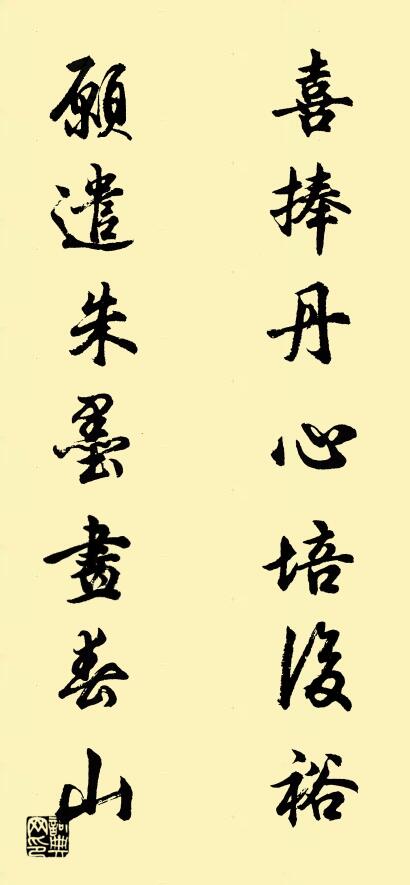 喜捧丹心培後裕
願遣朱墨畫春山